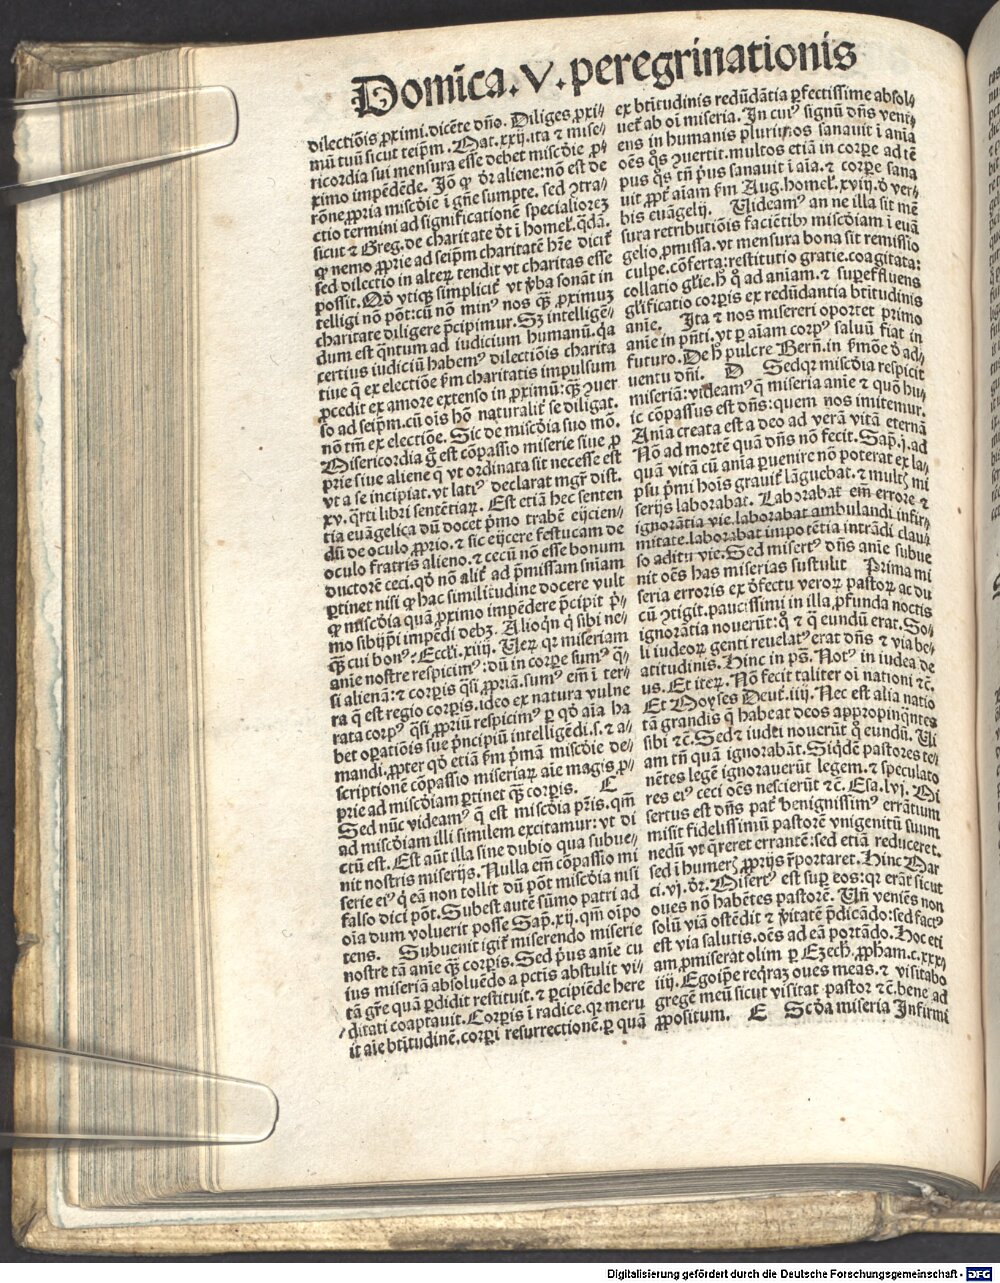 Domīca.V.peregrinationis
dilectiōis ꝓximi.dicēte dño. Diliges ꝓxi⸗
mū tuū sicut teip̄m. Mat.xxij.ita ⁊ mise⸗
ricordia sui mensura esse debet miscd̄ie ꝓ⸗
ximo impēdēde. Iō ꝙ dr̄ aliene: nō est de
rōne ꝓpria miscd̄ie ī gn̄e sumpte. sed ↄtra⸗
ctio termini ad significationē specialiorē
sicut ⁊ Greg. de charitate dt̄ i homel. qdā.
ꝙ nemo ꝓprie ad seip̄m charitatē hr̄e dicit̄
sed dilectio in alteꝝ tendit vt charitas esse
possit. Qd̄ vtiqꝫ simplicit̄ vt v̄ba sonāt in
telligi nō pōt: cū nō minꝰ nos qꝫ ꝓximuꝫ
charitate diligere p̄cipimur. Sꝫ intelligē⸗
dum est qn̄tum ad iudicium humanū. qa
certius iudiciū habemꝰ dilectiōis charita
tiue q̄ ex electiōe sm̄ charitatis impulsum
ꝓcedit ex amore extenso in ꝓximū: qꝫ ↄuer
so ad seip̄m. cū oīs hō naturalit̄ se diligat.
nō tm̄ ex electiōe. Sic de miscd̄ia suo mō.
Misericordia g̊ est cōpassio miserie siue ꝓ
prie siue aliene q̄ vt ordinata sit necesse est
vt a se incipiat. vt latiꝰ declarat mgr̄ dist.
xv. q̄rti libri sentētiaꝝ. Est etiā hec senten
tia euāgelica dū docet p̄mo trabē eijcien⸗
dū de oculo ꝓprio. ⁊ sic eijcere festucam de
oculo fratris alieno. ⁊ cecū nō esse bonum
ductorē ceci. qd̄ nō alit̄ ad p̄missam sniam
ꝑtinet nisi ꝙ hac similitudine docere vult
ꝙ miscd̄ia quā ꝓximo impēdere p̄cipit p̄⸗
mo sibijp̄i impēdi debꝫ. Alioqn̄ q̄ sibi ne⸗
qꝫ cui bonꝰ: Eccl̄i.xiiij. Veꝝ qꝛ miseriam
anie nostre respicimꝰ: dū in corꝑe sumꝰ q̄⸗
si alienā: ⁊ corꝑis qsi ꝓpriā. sumꝰ em̄ i ter⸗
ra q̄ est regio corꝑis. ideo ex natura vulne
rata corpꝰ qsi ꝓpriū respicimꝰ ꝑ qd̄ aīa ha
bet oꝑatiōis sue p̄ncipiū intelligēdi .s. ⁊ a⸗
mandi. ꝓpter qd̄ etiā sm̄ p̄mā miscd̄ie de⸗
scriptionē cōpassio miseriaꝝ aīe magis ꝓ⸗
prie ad miscd̄iam ꝑtinet qꝫ corꝑis. C
Sed nūc videamꝰ q̄ est miscd̄ia pr̄is. qm̄
ad miscd̄iam illi similem excitamur: vt di
ctū est. Est aūt illa sine dubio qua subue⸗
nit nostris miserijs. Nulla em̄ cōpassio mi
serie eiꝰ q̄ eā non tollit dū pōt miscd̄ia nisi
falso dici pōt. Subest autē sūmo patri ad
oīa dum voluerit posse Sap̄.xij. qm̄ oīpo
tens. Subuenit igit̄ miserendo miserie
nostre tā anīe qꝫ corꝑis. Sed p̄us anīe cu
ius miseriā absoluēdo a pctis abstulit vi⸗
tā gr̄e quā ꝑdidit restituit. ⁊ ꝑcipiēde here
ditati coaptauit. Corꝑis i radice. qꝛ meru
it aīe btitudinē. corꝑi resurrectionē. ꝑ quā
ex btitudinis redūdātia ꝑfectissime absol⸗
uet̄ ab oī miseria. In cuiꝰ signū dn̄s veni⸗
ens in humanis plurimos sanauit i anīa
oēs qͦs ↄuertit. multos etiā in corꝑe ad tē
pus qͦs tn̄ p̄us sanauit i aīa. ⁊ corꝑe sana
uit ꝓpt̄ aīam sm̄ Aug. homel. xviij. d̓ ver⸗
bis euāgelij. Uideamꝰ an ne illa sit mē
sura retributiōis faciētibꝰ miscd̄iam i euā
gelio ꝓmissa. vt mensura bona sit remissio
culpe. cōferta: restitutio gratie. coagitata:
collatio gl̄ie. h̄ qͦ ad aniam. ⁊ suꝑeffluens
gl̄ificatio corꝑis ex redūdantia btitudinis
anīe. Ita ⁊ nos misereri oportet primo
anīe in pn̄ti. vt ꝑ aīam corpꝰ saluū fiat in
futuro. De h̄ pulcre Bern̄. in smōe d̓ ad⸗
uentu dn̄i. D Sedqꝛ miscd̄ia respicit
miseriā: videamꝰ q̄ miseria anīe ⁊ quō hu⸗
ic cōpassus est dn̄s: quem nos imitemur.
Anīa creata est a deo ad verā vitā eternā
Nō ad mortē quā dn̄s nō fecit. Sap̄.j. ad
quā vitā cū anīa ꝑuenire nō poterat ex la⸗
psu p̄mi hoīs grauit̄ lāguebat. ⁊ multꝭ mi
serijs laborabat. Laborabat em̄ errore ⁊
ignorātia vie. laborabat ambulandi infir⸗
mitate. laborabat impotētia intrādi clau⸗
so aditu vie. Sed misertꝰ dn̄s anīe subue
nit oēs has miserias sustulit Prima mi
seria erroris ex d̓fectu veroꝝ pastoꝝ ac du
cū ↄtigit. paucissimi in illa ꝓfunda noctis
ignorātia nouerūt: qͦ ⁊ q̄ eundū erat. So⸗
li iudeoꝝ genti reuelatꝰ erat dn̄s ⁊ via be⸗
atitudinis. Hinc in ps̄. Notꝰ in iudea de
us. Et iteꝝ. Nō fecit taliter oī nationi ⁊c̄.
Et Moyses Deut̄.iiij. Nec est alia natio
tā grandis q̄ habeat deos appropinqn̄tes
sibi ⁊c̄. Sed ⁊ iudei nouerūt qͦ eundū. Vi
am tn̄ quā ignorabāt. Siqdē pastores te⸗
nētes legē ignorauerūt legem. ⁊ speculato
res eiꝰ ceci oēs nescierūt ⁊c̄. Esa.lvj. Mi
sertus est dn̄s pat̄ benignissimꝰ errātum
misit fidelissimū pastorē vnigenitū suum
nedū vt qreret errantē: sed etiā reduceret.
sed i humerꝭ ꝓprijs r̄portaret. Hinc Mar
ci.vj. dr̄. Misertꝰ est suꝑ eos: qꝛ erāt sicut
oues nō habētes pastorē. Vn̄ veniēs non
solū viā ostēdit ⁊ v̄itatē p̄dicādo: sed factꝰ
est via salutis. oēs ad eā portādo. Hoc eti
am ꝓmiserat olim ꝑ Ezech̄. ꝓpham. c.xxx⸗
iiij. Egoip̄e reqrā oues meas. ⁊ visitabo
gregē meū sicut visitat pastor ⁊c̄. bene ad
ꝓpositum. E Scd̄a miseria Infirmi
Digitalisierung gefördert durch die Deutsche Forschungsgemeinschaft - DFG